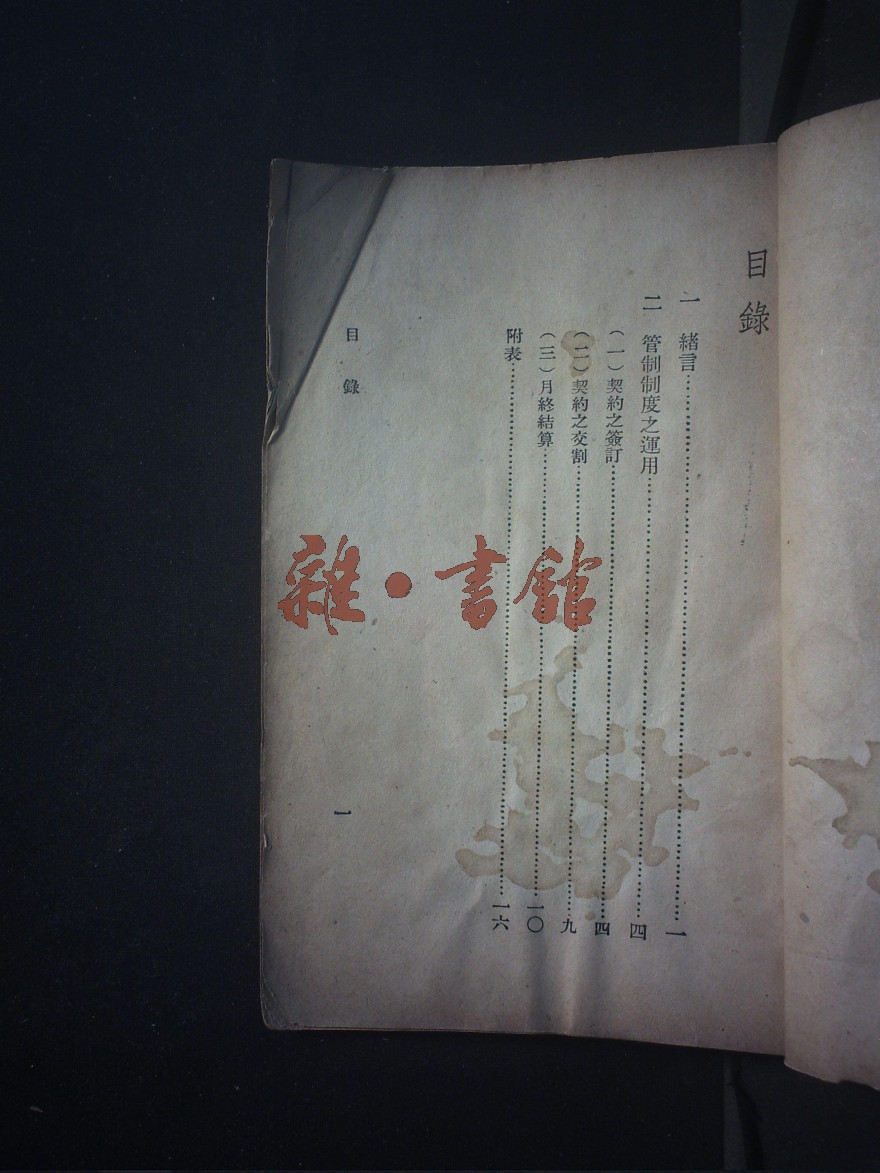 目錄
一 緒言……一
二 管制制度之運用……四
（一）契約之簽訂……四
（二）契約之交割……九
（三）月終結算……一〇
附表……一六
目錄
一
雜·書館